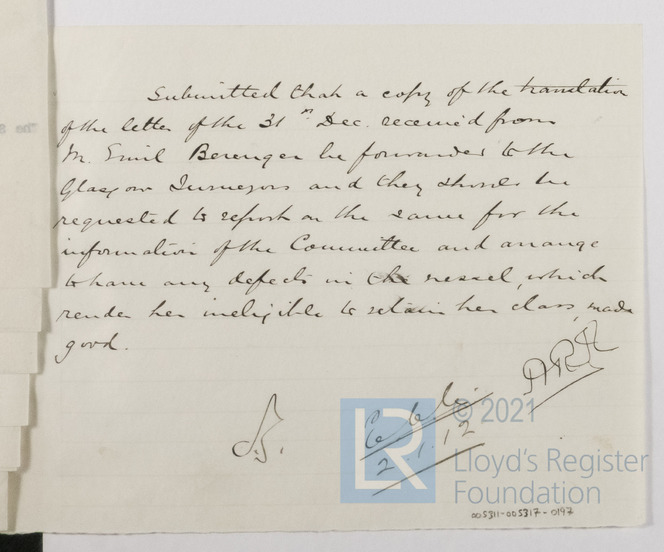 Submitted that a copy of the translation
of the letter of the 31st Dec. received from
Mr. Emil Berenger be forwarded to the
Glasgow Surveyors and they should be
requested to report on the same for the
information of the Committee and arrange
to have any defects in the vessel, which
render her ineligible to retain her class, made
good.
2.1.12
LR
© 2021
Lloyd's Register
Foundation
005311-005317-0197